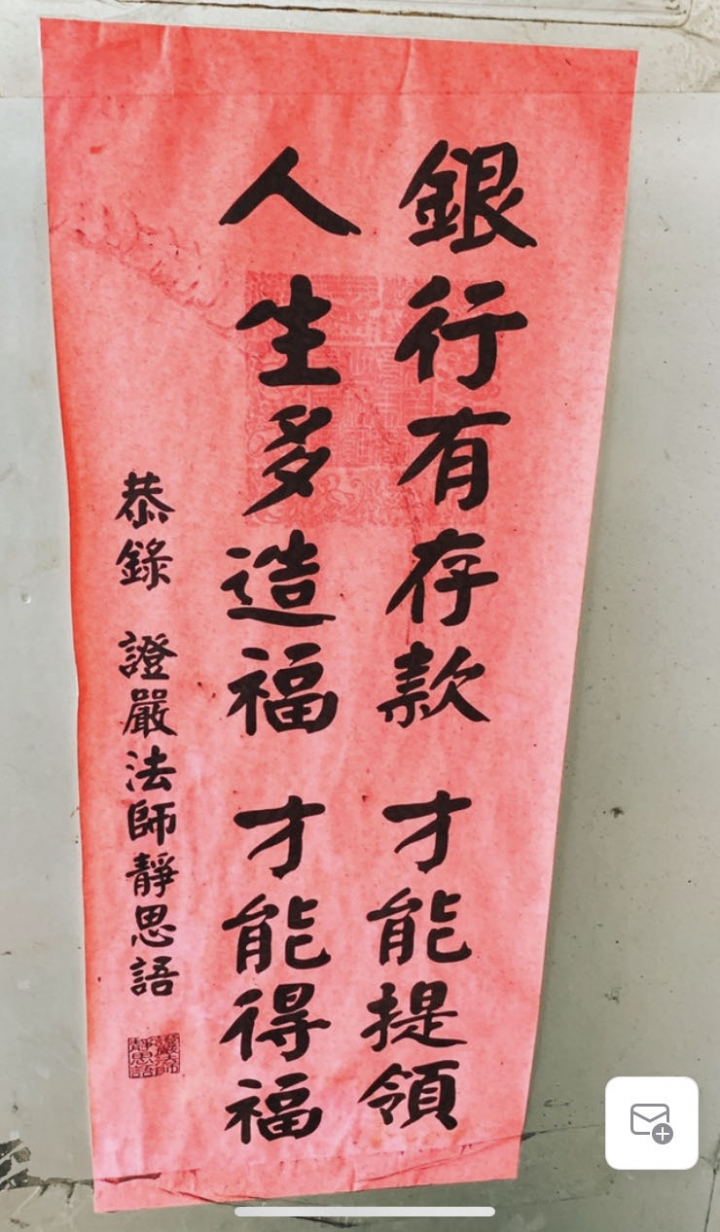 銀行有存款 才能提領
人生多造福 才能得福
恭錄 證嚴法師靜思語